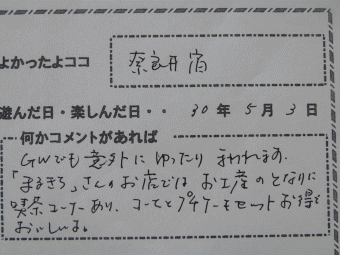 よかったよココ
奈良井宿
遊んだ日・楽しんだ日・・ 30年5月3日
何かコメントがあれば
GWでも意外にゆったりまわれます。
「まるきち」さんのお店では、お土産のとなりに
喫茶コーナーあり、コーヒーとプチケーキセットお得で
おいしいよ。